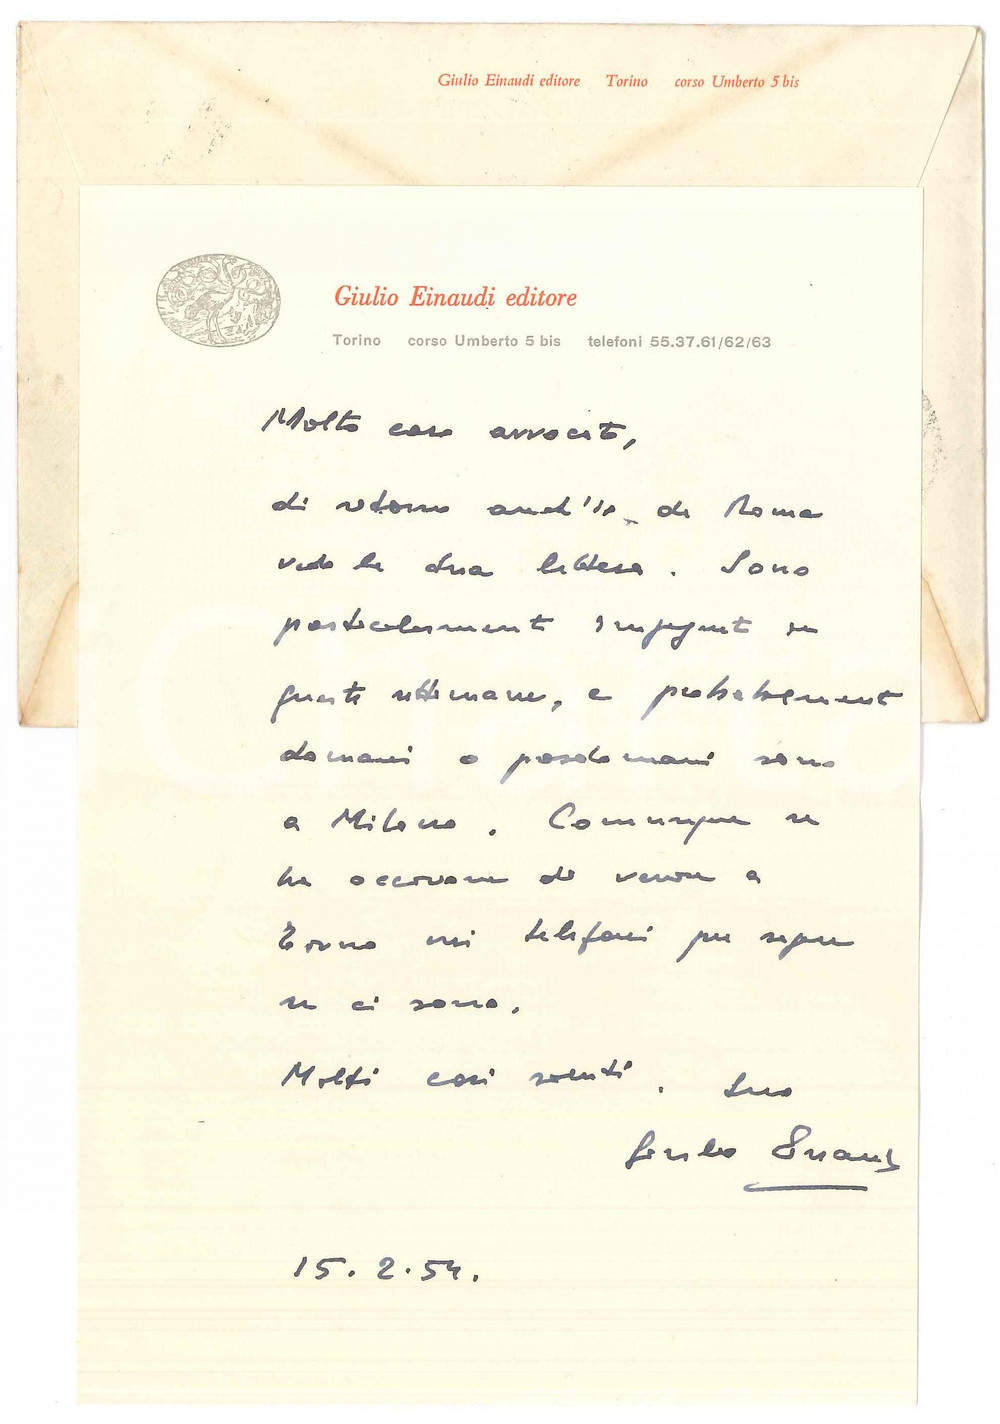 Giulio Einaudi editore Torino corso Umberto 5 bis
Giulio Einaudi editore
Torino corso Umberto 5 bis telefoni 55.37.61/62/63
Molto caro avvocato,
di ritorno anch'io da Roma
vedo la sua lettera. Sono
particolarmente impegnato in
questa settimana, e probabilmente
domani o posdomani sono
a Milano. Comunque se
ha occasione di venire a
Torino mi telefoni per sapere
se ci sono.
Molti cari saluti. Suo
Giulio Einaudi
15.2.54.